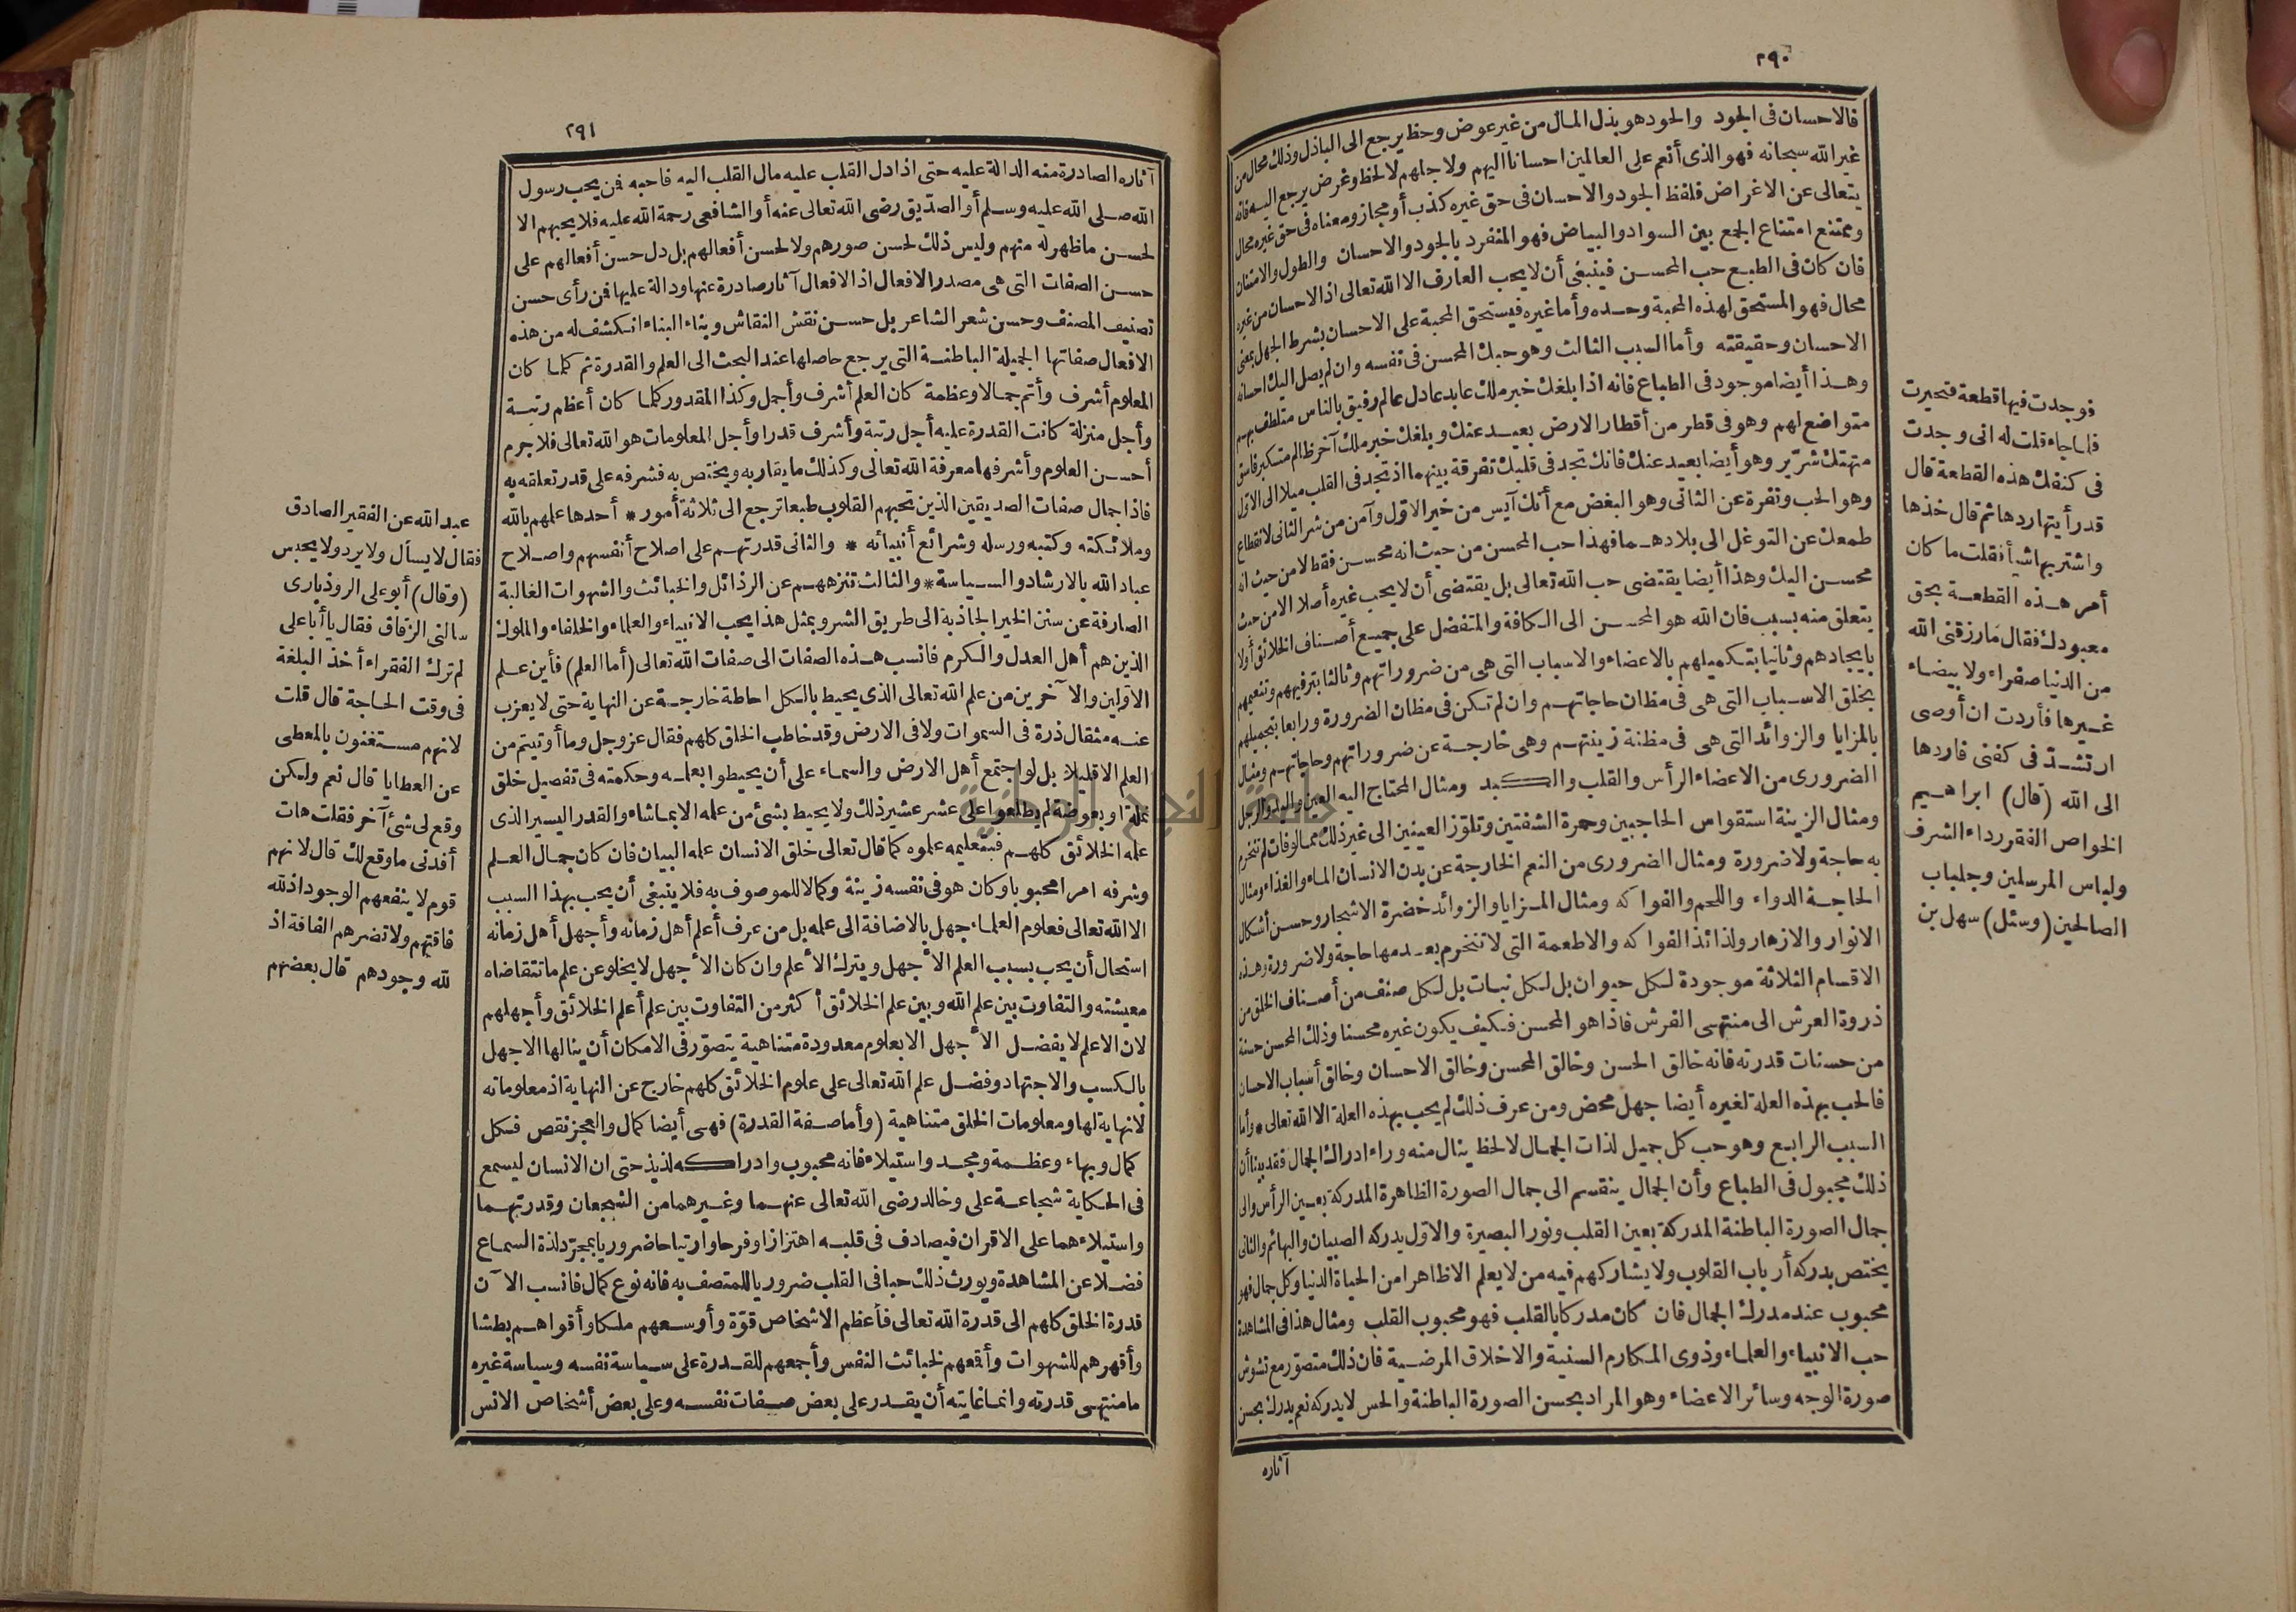 ٢٩٠
فالاحسان فى الجود والجود هو بذل المال من غير عوض وحظ يرجع الى الباذل وذلك محال من
غير الله سبحانه فهو الذى أنعم على العالمين احسانا اليهم ولاجلهم لا لحظ وغرض يرجع اليه فانه
يتعالى عن الاغراض فلفظ الجود والاحسان فى حق غيره كذب أو مجاز ومعناه فى حق غيره محال
وممتنع امتناع الجمع بين السواد والبياض فهو المنفرد بالجود والاحسان والطول والامتنان
فان كان فى الطبع حب المحسن فينبغى أن لا يحب العارف الا الله تعالى اذ الاحسان من غيره
محال فهو المستحق لهذه المحبة وحده وأما غيره فيستحق المحبة على الاحسان بشرط الجهل بمعنى
الاحسان وحقيقته وأما السبب الثالث وهو حبك المحسن فى نفسه وان لم يصل اليك احسانه
وهذا أيضا موجود فى الطباع فانه اذا بلغك خبر ملك عابد عادل عالم رفيق بالناس متلطف بهم
متواضع لهم وهو فى قطر من أقطار الارض بعيد عنك وبلغك خبر ملك آخر ظالم متكبر فاسق
متهتك شرّير وهو أيضا بعيد عنك فانك تجد فى قلبك تفرقة بينهما اذ تجد فى القلب ميلا الى الاوّل
وهو الحب ونفرة عن الثانى وهو البغض مع أنك آيس من خير الاوّل وآمن من شر الثانى لانقطاع
طمعك عن التوغل الى بلادهما فهذا حب المحسن من حيث انه محسن فقط لا من حيث انه
محسن اليك وهذا أيضا يقتضى حب الله تعالى بل يقتضى أن لا يحب غيره أصلا الا من حيث
يتعلق منه بسبب فان الله هو المحسن الى الكافة والمتفضل على جميع أصناف الخلائق أولا
بايجادهم وثانيا بتكميلهم بالاعضاء والاسباب التى هى من ضروراتهم وثالثا بترفيههم وتنعيمهم
بخلق الاسباب التى هى فى مظان حاجاتهم وان لم تكن فى مظان الضرورة ورابعا بتجميلهم
بالمزايا والزوائد التى هى فى مظنة زينتهم وهى خارجة عن ضروراتهم وحاجاتهم ومثال
الضرورى من الاعضاء الرأس والقلب والكبد ومثال المحتاج اليه العين واليد والرجل
ومثال الزينة استقواس الحاجبين وحمرة الشفتين وتلوّز العينين الى غير ذلك مما لو فات لم تنخرم
به حاجة ولا ضرورة ومثال الضرورى من النعم الخارجة عن بدن الانسان الماء والغذاء ومثال
الحاجة الدواء واللحم والفواكه ومثال المزايا والزوائد خضرة الاشجار وحسن أشكال
الانوار والازهار ولذائذ الفواكه والاطعمة التى لا تنخرم بعدمها حاجة ولا ضرورة وهذه
الاقسام الثلاثة موجودة لكل حيوان بل لكل نبات بل لكل صنف من أصناف الخلق من
ذروة العرش الى منتهى الفرش فاذا هو المحسن فكيف يكون غيره محسنا وذلك المحسن حسنة
من حسنات قدرته فانه خالق الحسن وخالق المحسن وخالق الاحسان وخالق أسباب الاحسان
فالحب بهذه العلة لغيره أيضا جهل محض ومن عرف ذلك لم يحب بهذه العلة الا الله تعالى * وأما
السبب الرابع وهو حب كل جميل لذات الجمال لا لحظ ينال منه وراء ادراك الجمال فقد بينا أن
ذلك مجبول فى الطباع وأن الجمال ينقسم الى جمال الصورة الظاهرة المدركة بعين الرأس والى
جمال الصورة الباطنة المدركة بعين القلب ونور البصيرة والاوّل يدركه الصبيان والبهائم والثانى
يختص بدركه أرباب القلوب ولا يشاركهم فيه من لا يعلم الا ظاهرا من الحياة الدنيا وكل جمال فهو
محبوب عند مدرك الجمال فان كان مدركا بالقلب فهو محبوب القلب ومثال هذا فى المشاهدة
حب الانبياء والعلماء وذوى المكارم السنية والاخلاق المرضية فان ذلك متصوّر مع تشوش
صورة الوجه وسائر الاعضاء وهو المراد بحسن الصورة الباطنة والحس لا يدركه نعم يدرك بحسن
آثاره
فوجدت فيها قطعة فتحيرت
فلما جاء قلت له انى وجدت
فى كنفك هذه القطعة قال
قدر أيتها ردها ثم قال خذها
واشتر بها شيأ فقلت ما كان
أمر هذه القطعة بحق
معبودك فقال مارزقنى الله
من الدنيا صفراء ولا بيضاء
غيرها فأردت ان أوصى
ان تشدّ فى كفنى فاردها
الى الله (قال) ابراهيم
الخواص الفقر رداء الشرف
ولباس المرسلين وجلباب
الصالحين (وسئل) سهل بن
٢٩١
آثاره الصادرة منه الدالة عليه حتى اذا دل القلب عليه مال القلب اليه فاحبه فمن يحب رسول
الله صلى الله عليه وسلم أو الصدّيق رضى الله تعالى عنه أو الشافعى رحمة الله عليه فلا يحبهم الا
لحسن ما ظهر له منهم وليس ذلك لحسن صورهم ولا لحسن أفعالهم بل دل حسن أفعالهم على
حسن الصفات التى هى مصدر الافعال اذ الافعال آثار صادرة عنها ودالة عليها فمن رأى حسن
تصنيف المصنف وحسن شعر الشاعر بل حسن نقش النقاش وبناء البناء انكشف له من هذه
الافعال صفاتها الجميلة الباطنة التى يرجع حاصلها عند البحث الى العلم والقدرة ثم كلما كان
المعلوم أشرف وأتم جمالا وعظمة كان العلم أشرف وأجمل وكذا المقدور كلما كان أعظم رتبة
وأجل منزلة كانت القدرة عليه أجل رتبة وأشرف قدرا وأجل المعلومات هو الله تعالى فلا جرم
أحسن العلوم وأشرفها معرفة الله تعالى وكذلك ما يقاربه ويختص به فشرفه على قدر تعلقه به
فاذا جمال صفات الصديقين الذين تحبهم القلوب طبعا ترجع الى ثلاثة أمور * أحدها علمهم بالله
وملائكته وكتبه ورسله وشرائع أنبيائه * والثانى قدرتهم على اصلاح أنفسهم واصلاح
عباد الله بالارشاد والسياسة * والثالث تنزههم عن الرذائل والخبائث والشهوات الغالبة
الصارفة عن سنن الخير الجاذبة الى طريق الشر وبمثل هذا يحب الانبياء والعلماء والخلفاء والملوك
الذين هم أهل العدل والكرم فانسب هذه الصفات الى صفات الله تعالى (أما العلم) فأين علم
الاوّلين والآخرين من علم الله تعالى الذى يحيط بالكل احاطة خارجة عن النهاية حتى لا يعزب
عنه مثقال ذرة فى السموات ولا فى الارض وقد خاطب الخلق كلهم فقال عز وجل وما أوتيتم من
العلم الا قليلا بل لو اجتمع أهل الارض والسماء على أن يحيطوا بعلمه وحكمته فى تفصيل خلق
نملة أو بعوضة لم يطلعوا على عشر عشير ذلك ولا يحيط بشئ من علمه الا بما شاء والقدر اليسير الذى
علمه الخلائق كلهم فبتعليمه علموه كما قال تعالى خلق الانسان علمه البيان فان كان جمال العلم
وشرفه امرا محبوبا وكان هو فى نفسه زينة وكمالا للموصوف به فلا ينبغى أن يحب بهذا السبب
الا الله تعالى فعلوم العلماء جهل بالاضافة الى علمه بل من عرف أعلم أهل زمانه وأجهل أهل زمانه
استحال أن يحب بسبب العلم الأجهل ويترك الأعلم وان كان الأجهل لا يخلو عن علم ما تتقاضاه
معيشته والتفاوت بين علم الله وبين علم الخلائق أكثر من التفاوت بين علم أعلم الخلائق وأجهلهم
لان الاعلم لا يفضل الأجهل الا بعلوم معدودة متناهية يتصوّر فى الامكان أن ينالها الاجهل
بالكسب والاجتهاد وفضل علم الله تعالى على علوم الخلائق كلهم خارج عن النهاية اذ معلوماته
لا نهاية لها ومعلومات الخلق متناهية (وأما صفة القدرة) فهى أيضا كمال والعجز نقص فكل
كمال وبهاء وعظمة ومجد واستيلاء فانه محبوب وادراكه لذيذ حتى ان الانسان ليسمع
فى الحكاية شجاعة على وخالد رضى الله تعالى عنهما وغيرهما من الشجعان وقدرتهما
واستيلاءهما على الاقران فيصادف فى قلبه اهتزازا وفرحا وارتياحا ضروريا بمجرّد لذة السماع
فضلا عن المشاهدة ويورث ذلك حبا فى القلب ضروريا للمتصف به فانه نوع كمال فانسب الآن
قدرة الخلق كلهم الى قدرة الله تعالى فأعظم الاشخاص قوّة وأوسعهم ملكا وأقواهم بطشا
وأقهرهم للشهوات وأقمعهم لخبائث النفس وأجمعهم للقدرة على سياسة نفسه وسياسة غيره
ما منتهى قدرته وانما غايته أن يقدر على بعض صفات نفسه وعلى بعض أشخاص الانس
عبد الله عن الفقير الصادق
فقال لا يسأل ولا يرد ولا يحبس
(وقال) أبو على الروذبارى
سالنى الزقاق فقال يا أبا على
لم ترك الفقراء أخذ البلغة
فى وقت الحاجة قال قلت
لانهم مستغنون بالمعطى
عن العطايا قال نعم ولكن
وقع لى شئ آخر فقلت هات
أفدنى ما وقع لك قال لانهم
قوم لا ينفعهم الوجود اذ لله
فاقتهم ولا تضرهم الفاقة اذ
لله وجودهم قال بعضهم